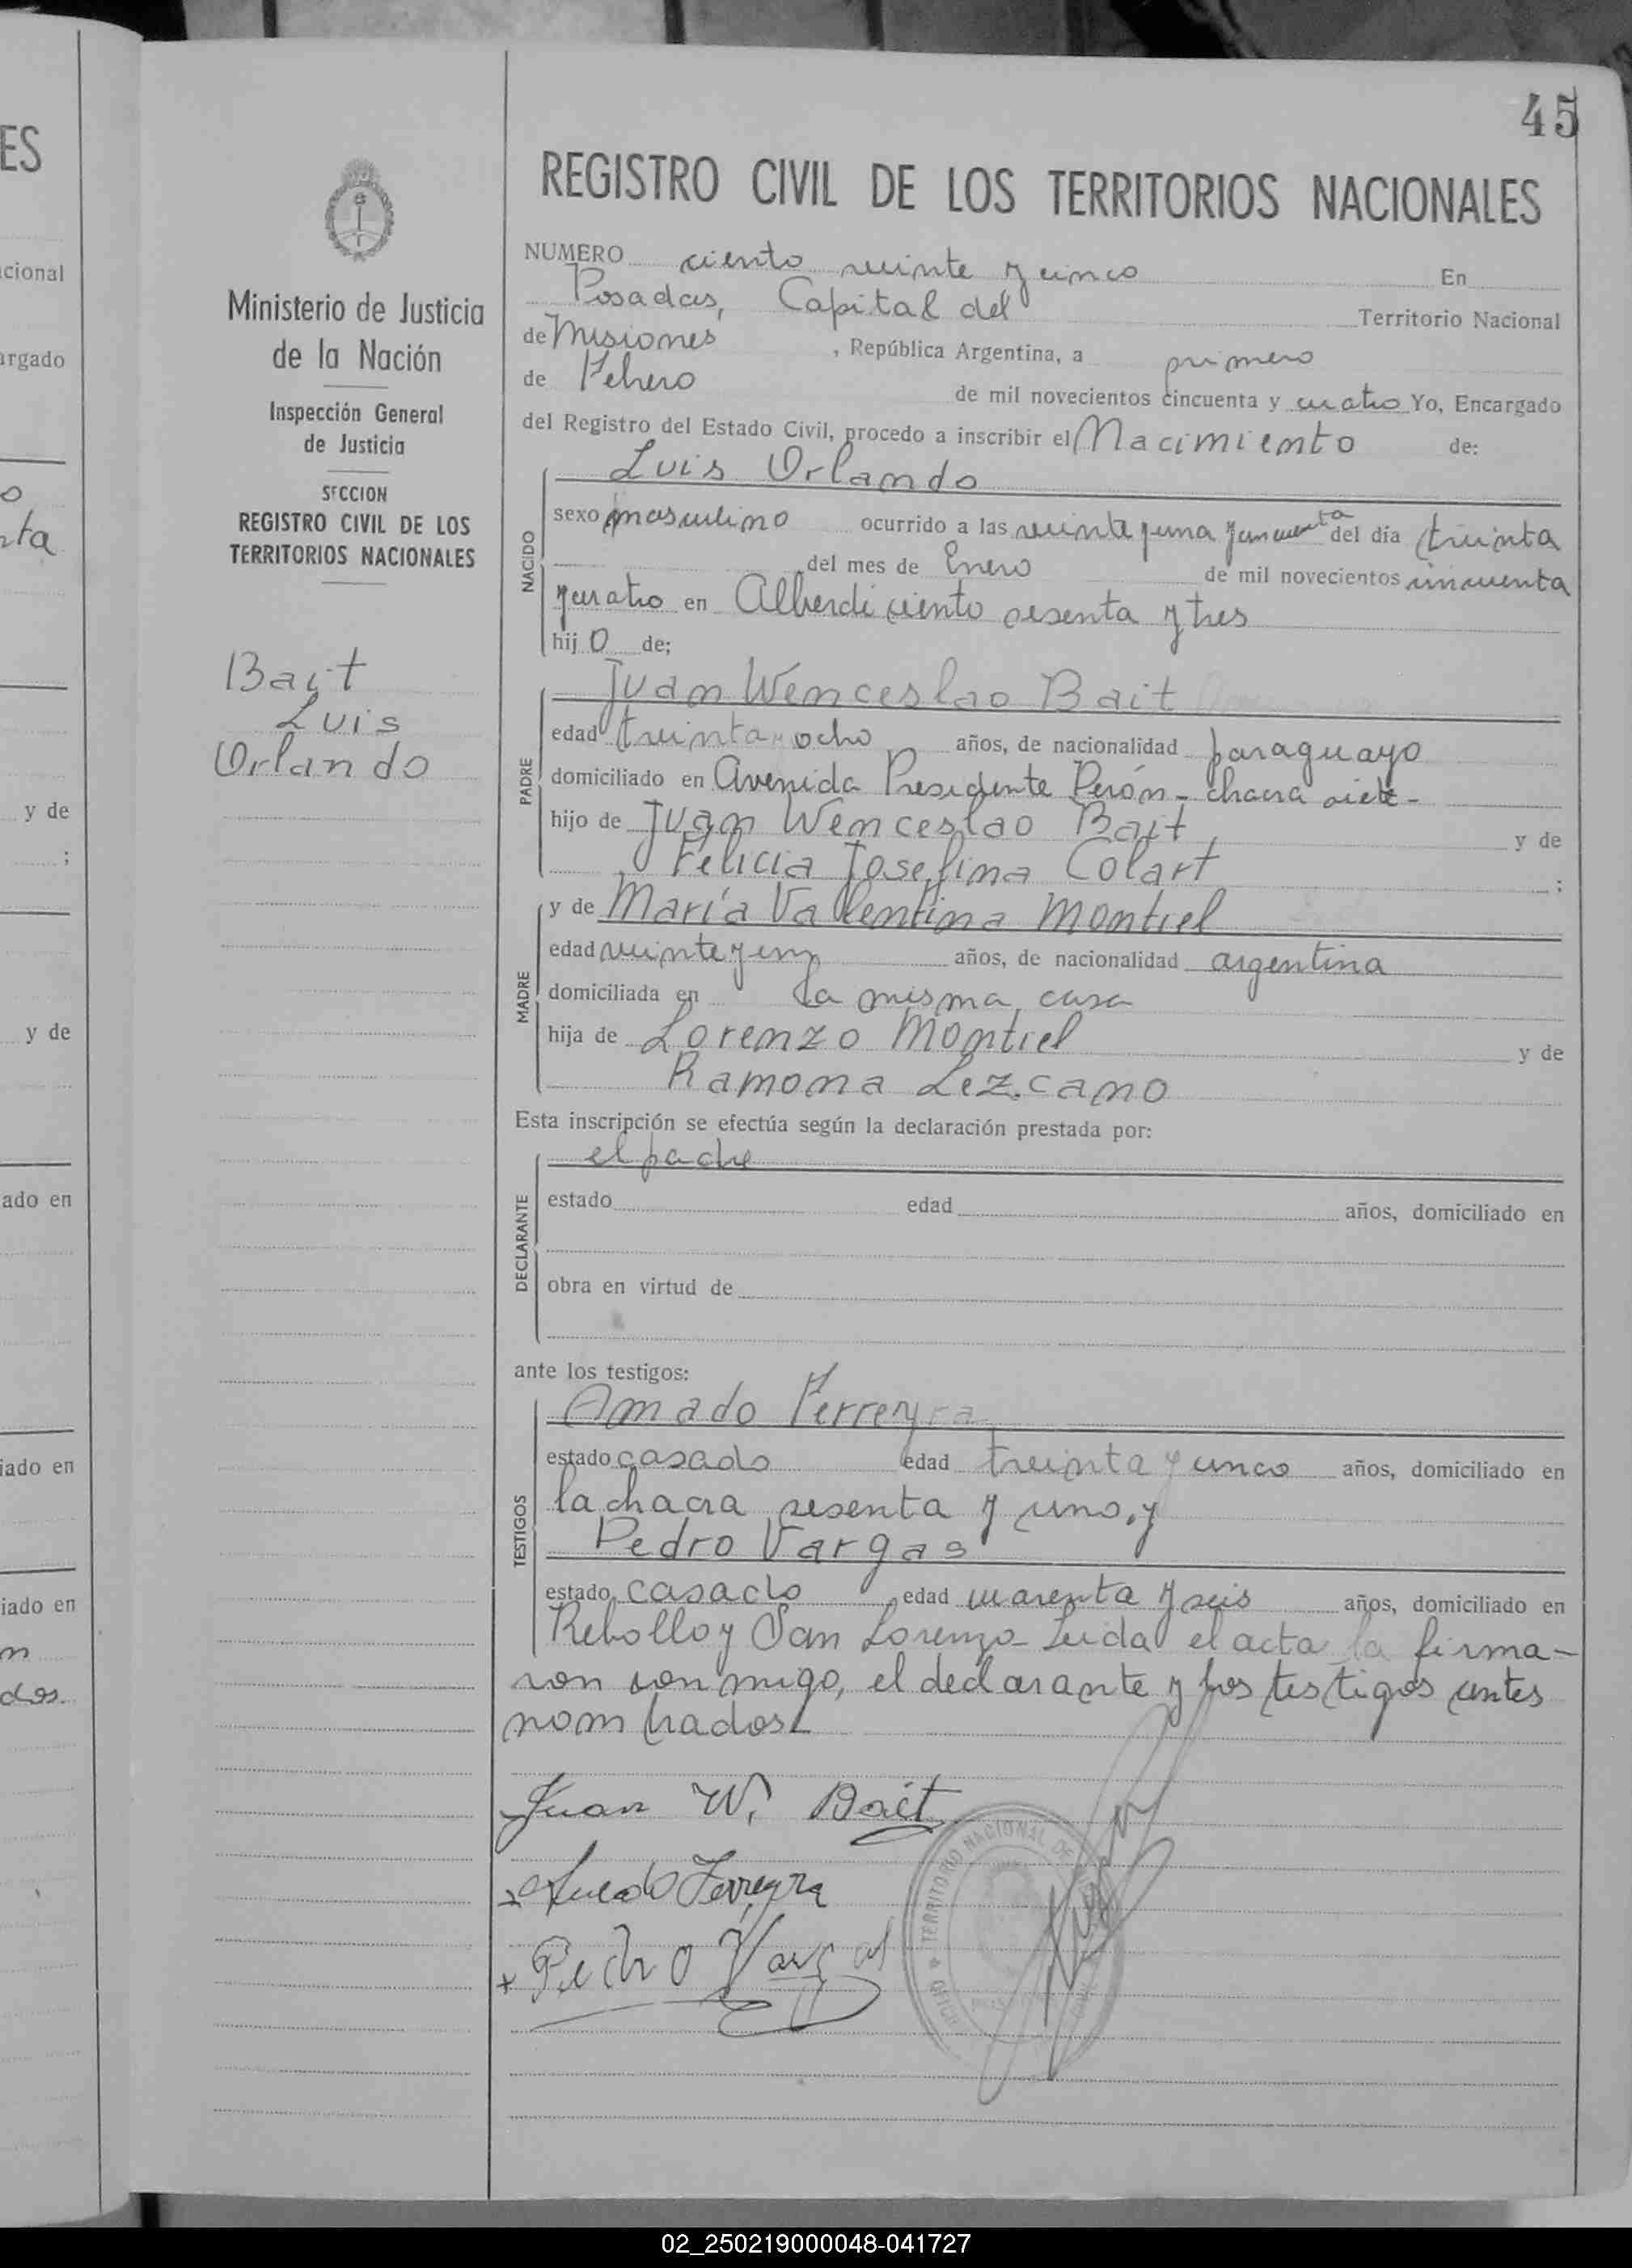 ES
cional
argado
o
nta
y de
;
y de
ado en
iado en
iado en
n
dos.
45
Ministerio de Justicia
de la Nación
Inspección General
de Justicia
SECCION
REGISTRO CIVIL DE LOS
TERRITORIOS NACIONALES
Bait
Luis
Orlando
REGISTRO CIVIL DE LOS TERRITORIOS NACIONALES
NUMERO ciento veinte y cinco En
Posadas, Capital del Territorio Nacional
de Misiones, República Argentina, a primero
de Febrero de mil novecientos cincuenta y cuatro Yo, Encargado
del Registro del Estado Civil, procedo a inscribir el Nacimiento de:
NACIDO
Luis Orlando
sexo masculino ocurrido a las veinte y una y cincuenta del día treinta
del mes de Enero de mil novecientos cincuenta
y cuatro en Alberdi ciento sesenta y tres
hijo de;
PADRE
Juan Wenceslao Bait
edad treinta ocho años, de nacionalidad paraguayo
domiciliado en Avenida Presidente Perón - chacra siete -
hijo de Juan Wenceslao Bait y de
Felicia Josefina Colart ;
MADRE
y de María Vallentina Montiel
edad veinte y un años, de nacionalidad argentina
domiciliada en la misma casa
hija de Lorenzo Montiel y de
Ramona Lezcano
Esta inscripción se efectúa según la declaración prestada por:
DECLARANTE
el padre
estado edad años, domiciliado en
obra en virtud de
ante los testigos:
TESTIGOS
Amado Ferreyra
estado casado edad treinta y cinco años, domiciliado en
la chacra sesenta y uno, y
Pedro Vargas
estado casado edad cuarenta y seis años, domiciliado en
Rebollo y San Lorenzo - Leida el acta la firma-
ron conmigo, el declarante y los testigos antes
nombrados.
Juan W. Bait
x Amado Ferreyra
x Pedro Vargas
TERRITORIO NACIONAL DE
02_250219000048-041727